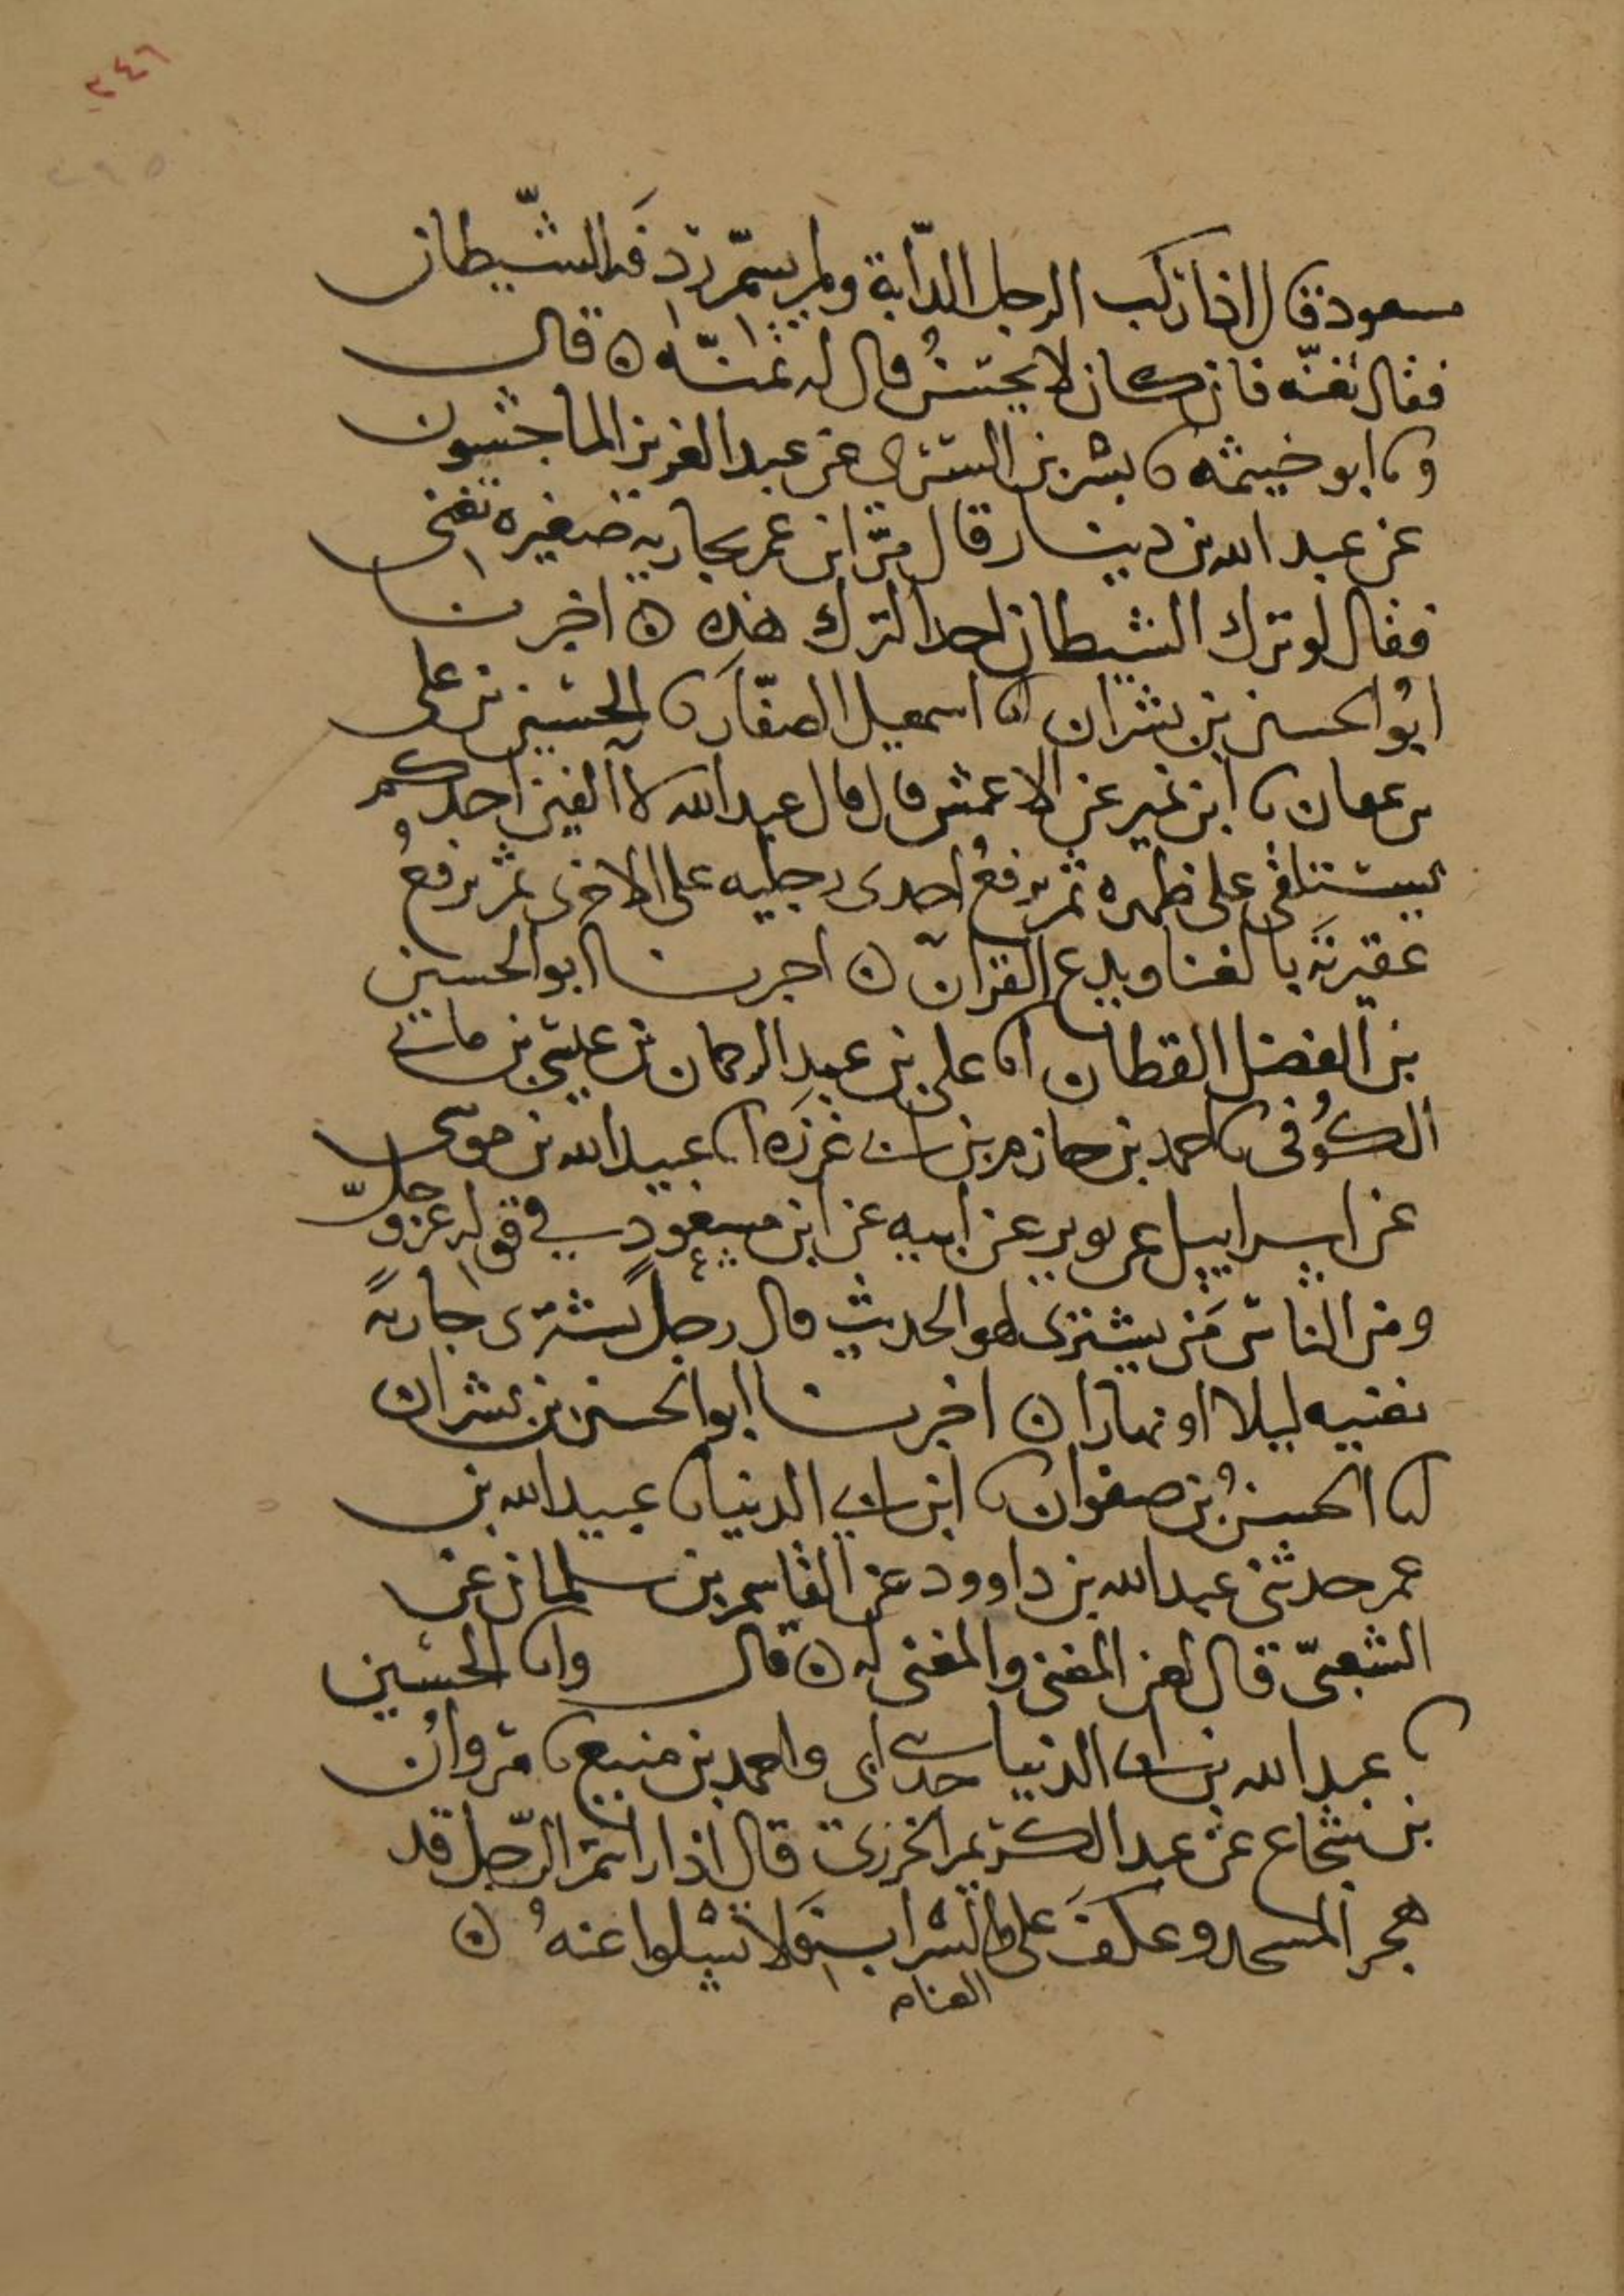 ٢٤٦
٢٩٥
مسعود قال اذا ركب الرجل الدابّة ولم يسمّ ردفه الشّيطان
فقال تغنّه فان كان لا يحسنُ قال له تمنّه ه قال
ونا ابو خيثمه نا بشر بن السّرى عن عبد العزيز الماجشون
عن عبد الله بن دينار قال مرّ ابن عمر بجاريه صغيره تغنى
فقال لو ترك الشيطان احدا لترك هذه ه اخبرنا
ابُو الحسين بن بشران انا اسمعيل الصفّار نا الحسن بن على
بن عفان نا ابن نمير عن الاعمش قال قال عبد الله لا الفين احدكم
يستلقى على ظهره ثم يرفعُ احدى رجليه على الاخرى ثم يرفعُ
عقيرته بالغنا ويدع القرآن ه اخبرنا ابو الحسين
بن الفضل القطان انا على بن عبد الرحمان بن عيسى بن ماتى
الكُوفى نا احمد بن حازم بن ابى غرزَه انا عبيد الله بن موسى
عن اسراييل عن ثوير عن ابيه عن ابن مسعود فى قوله عز وجلّ
ومن الناس مَن يشترى لهو الحديث قال رجلٌ يشترى جاريةً
تغنيه ليلا او نهارا ه اخبرنا ابو الحسين بن بشران
انا الحسينُ بن صفوان نا ابن ابى الدنيا نا عبيد الله بن
عمر حدثنى عبد الله بن داوود عن القاسم بن سلمان عن
الشعبىّ قال لعن المغنى والمغنى له ه قال وانا الحسين
نا عبد الله بن ابى الدنيا حدثنى ابى واحمد بن منيع نا مروان
بن شجاع عن عبد الكريم الجزرى قال اذا رايتم الرّجل قد
هجر المسجد وعكفَ على الشراب فلا تسلوا عنهُ ه
الغنا م